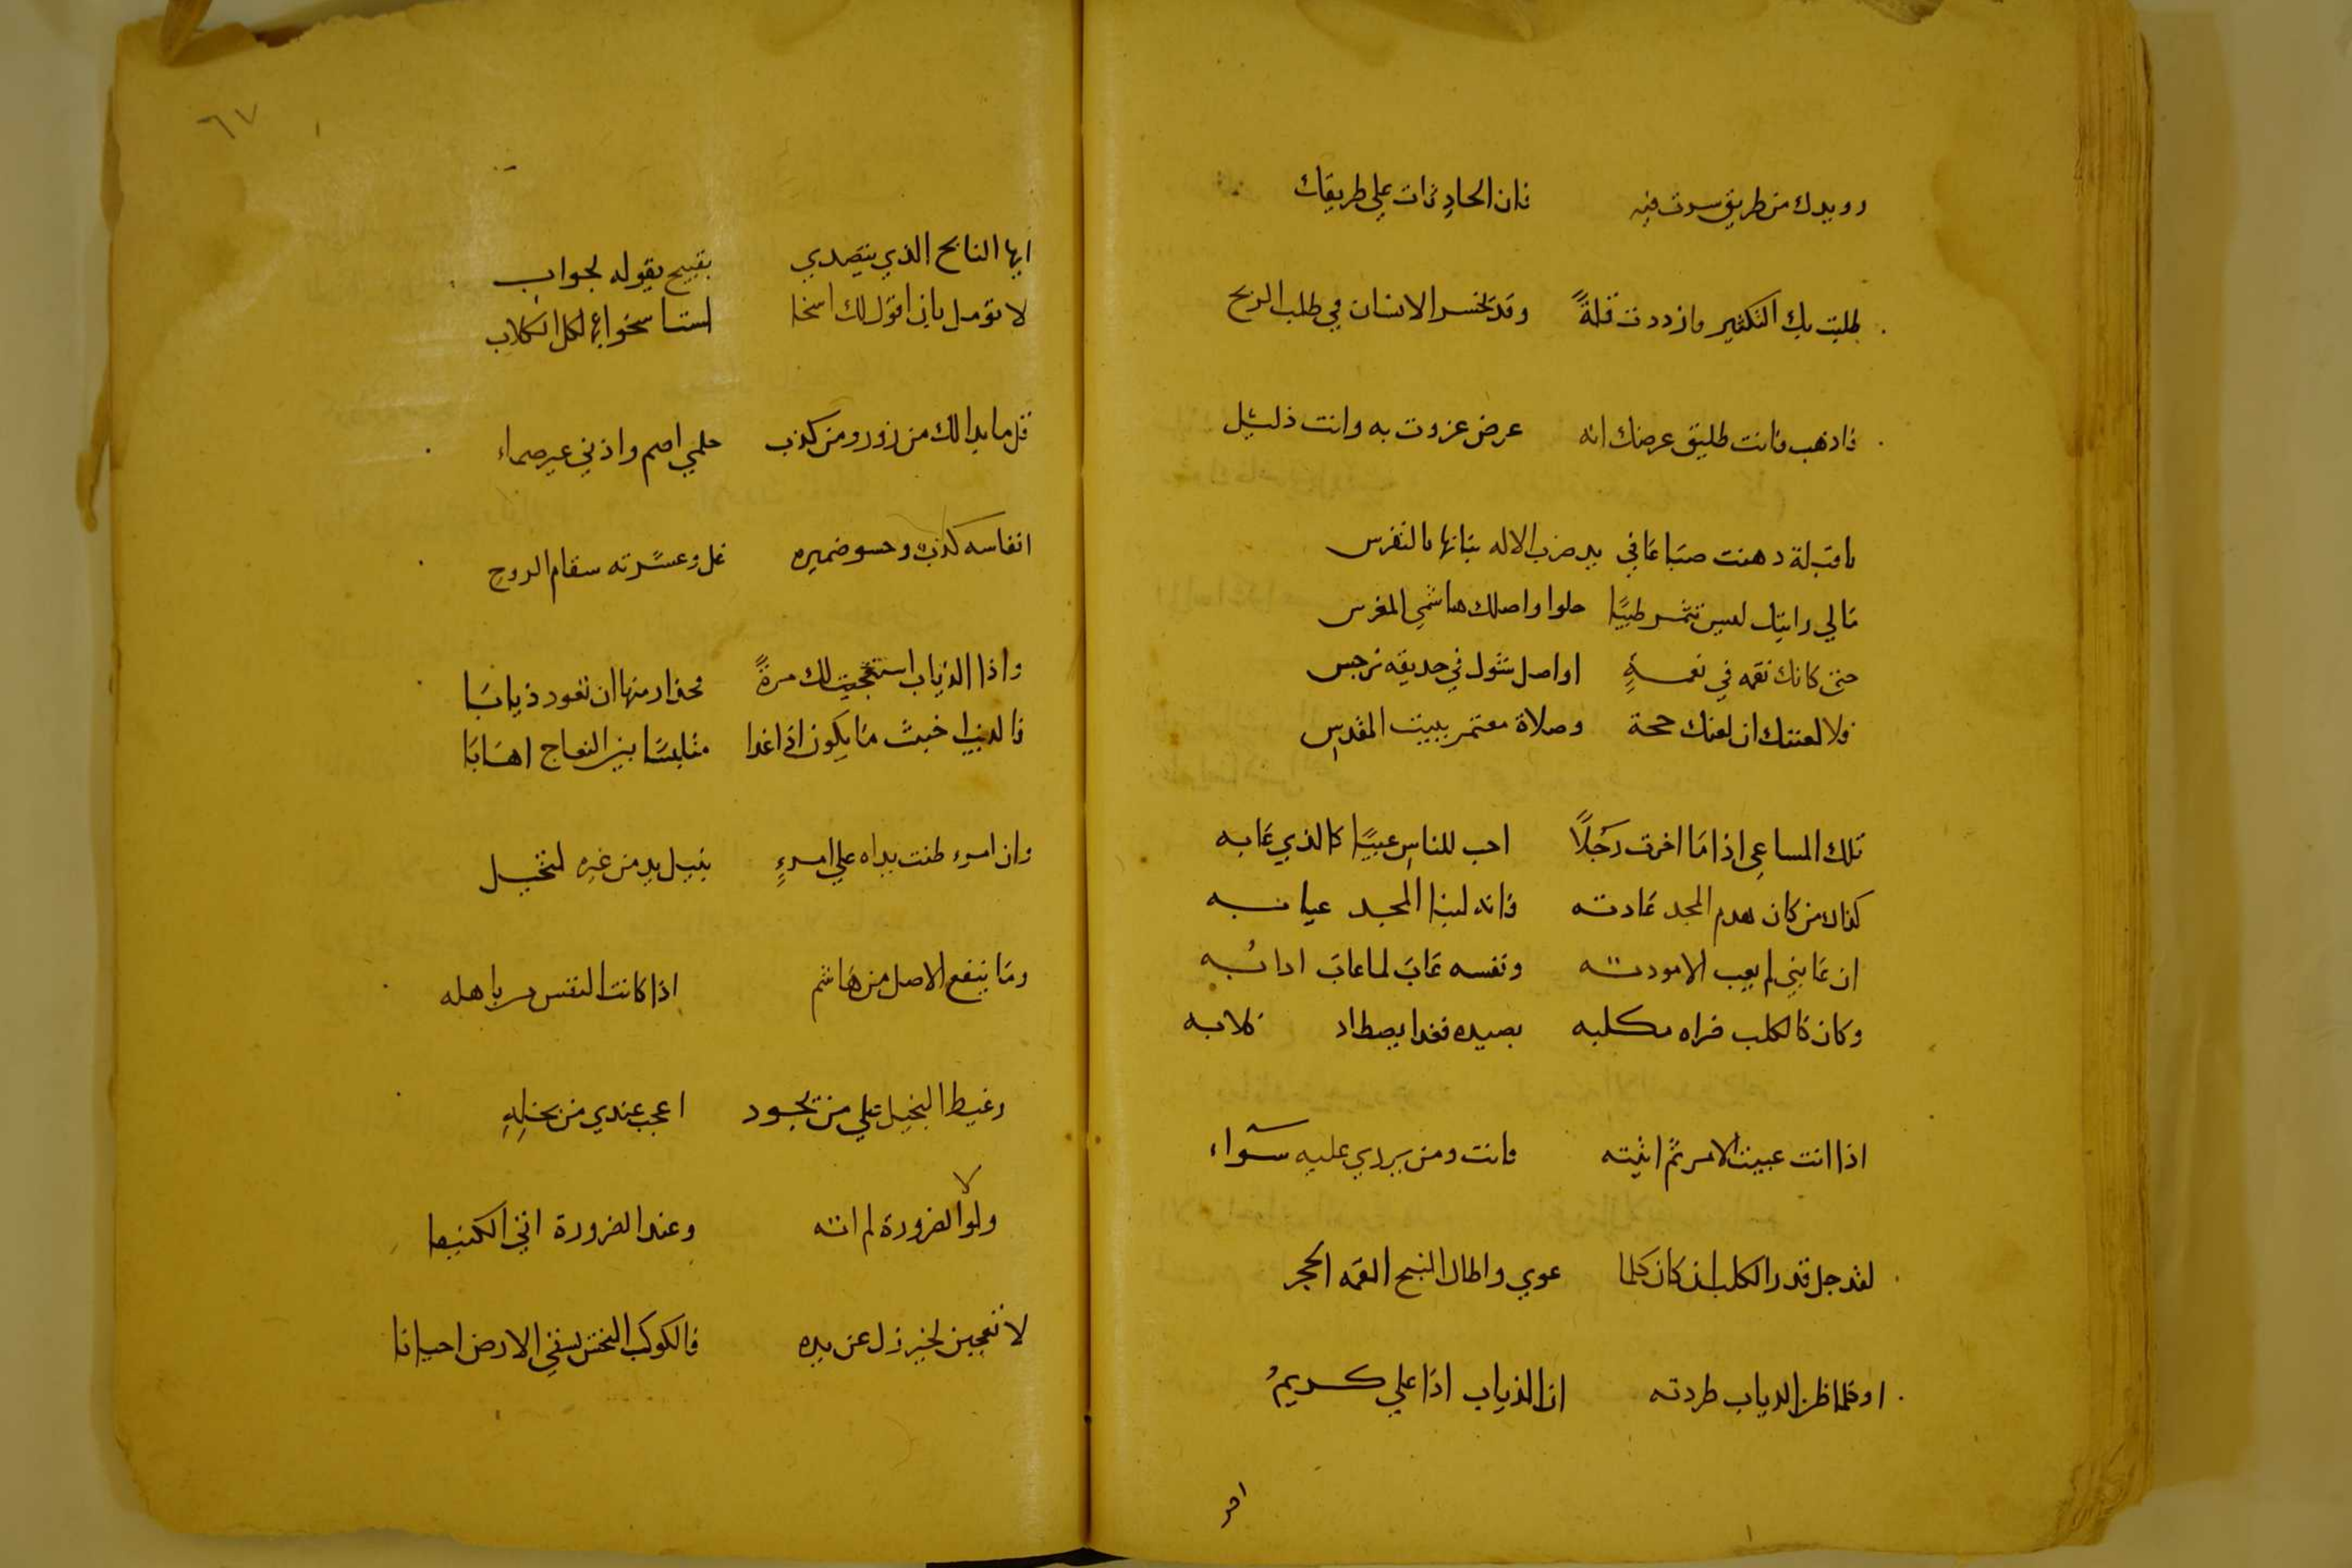 رويدك من طريق سرت فيه فان الحادثات علي طريقك
طلبت بك التكثير فازددت قلةً وقد يخسر الانسان في طلب الربح
فاذهب فانت طليق عرضك انه عرض عززت به وانت ذليل
يا قبلة دهنت بيد ضرب الاله بنانها بالنقرس
مالي رايتك لست تثمر طيبًا حلوا واصلك هاشمي المغرس
حتى كانك نقمه في نعمةٍ او اصل شوك في حديقه نرجس
فلا لعنتك ان لعنك حجة وصلاة معتمر ببيت المقدس
تلك المساعي اذا ما اخرت رجلًا احب للناس عيبًا كالذي عابه
كذاك من كان هدم المجد عادته فانه لبنا المجد عيابه
ان عابني لم يعب الا مودته ونفسه عاب لما عاب ادابُه
وكان كالكلب ضراه مكلبه بصيده فغدا يصطاد كلابه
اذا انت عبت الامر ثم اتيته فانت ومن يزري عليه سواء
لقد جل قدر الكلب ان كان كلما عوي واطال النبح القمه الحجر
او كلما ظن الذباب طردته ان الذباب اذا علي كريمُ
٦٧
ايها النابح الذي يتصدي بقبيح يقوله لجواب
لا تؤمل باني اقول لك اخسا لست اسخوا بها لكل الكلاب
قل ما بدا لك من زور ومن كذب حلمي اصم واذني غير صماء
انفاسه كذب وحشو ضميره غل وعشرته سقام الروح
واذا الذياب استنعجت لك مرةً فحذار منها ان تعود ذيابًا
فالذيب اخبث ما يكون اذا غدا متلبسًا بين النعاج اهابا
وان امرء ظنت يداه علي امرءٍ بنيل يد من غيره لبخيل
وما ينفع الاصل من هاشم اذا كانت النفس من باهله
وغيظ البخيل علي من يجود اعجب عندي من بخلهِ
ولولا الضرورة لم اته وعند الضرورة اتي الكنيفا
لا تعجبن لخير زل عن يده فالكوكب النحس يسقي الارض احيانا